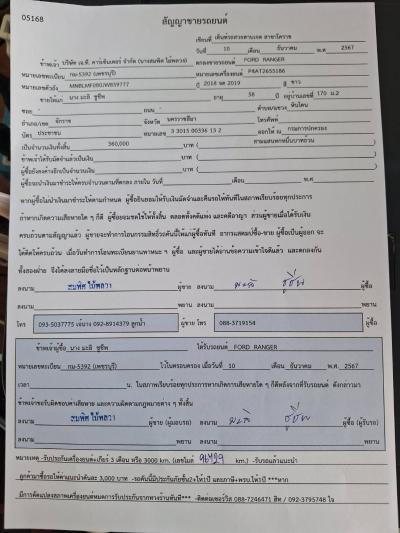 05168
สัญญาขายรถยนต์
เขียนที่ เต็นท์รถสวยตามเจต สาขาโคราช
วันที่ 10 เดือน ธันวาคม พ.ศ 2567
ข้าพเจ้า บริษัท เจ.ที. คาร์เซ็นเตอร์ จำกัด (นางสมพิศ ไม้พลวา) ตกลงขายรถยนต์ FORD RANGER
หมายเลขทะเบียน กม-5392 (เพชรบุรี) หมายเลขเครื่องยนต์ P4AT2655186
หมายเลขตัวถัง ปี 2018 จด 2019 สี ขาว
ขายให้แก่ นาง มะลิ ชูชีพ อายุ 58 ปี อยู่บ้านเลขที่ 170 ม.2
ซอย - ถนน - ตำบล/แขวง หินโคน
อำเภอ/เขต จักราช จังหวัด นครราชสีมา โทรศัพท์
บัตร ประชาชน หมายเลข 3 3015 00336 13 2 ออกให้ ณ กรมการปกครอง
เป็นจำนวนเงินทั้งสิ้น 360,000 บาท ( สามแสนหกหมื่นบาทถ้วน )
ข้าพเจ้าได้รับมัดจำแล้วเป็นเงิน บาท ( )
ผู้ซื้อยังคงค้างอีกเป็นจำนวนเงิน บาท ( )
ผู้ซื้อจะนำเงินมาชำระให้ครบจำนวนตามที่ตกลง ภายใน วันที่ เดือน พ.ศ
หากผู้ซื้อไม่นำเงินมาชำระให้ตามกำหนด ผู้ซื้อยินยอมให้ริบเงินมัดจำและคืนรถให้ทันทีในสภาพเรียบร้อยทุกประการ
ถ้าหากเกิดความเสียหายใด ๆ ก็ดี ผู้ซื้อยอมชดใช้ให้ทั้งสิ้น ตลอดทั้งคดีแพ่ง และคดีอาญา ส่วนผู้ขายเมื่อได้รับเงิน
ครบถ้วนตามสัญญาแล้ว ผู้ขายจะทำการโอนกรรมสิทธิ์รถคันนี้ให้แก่ผู้ซื้อทันที อากรแสตมป์ซื้อ-ขาย ผู้ซื้อเป็นผู้ออก จะ
ให้ติดให้ครบถ้วน เมื่อวันทำการโอนทะเบียนยานพาหนะ ฯ ผู้ซื้อ และผู้ขายได้อ่านข้อความเข้าใจดีแล้ว และตกลงกัน
ทั้งสองฝ่าย จึงได้ลงลายมือชื่อไว้เป็นหลักฐานต่อหน้าพยาน
ลงนาม สมพิศ ไม้พลวา ผู้ขาย ลงนาม มะลิ ชูชีพ ผู้ซื้อ
ลงนาม พยาน ลงนาม พยาน
โทร 093-5037775 เจ้นาง 092-8914379 ลูกน้ำ ผู้ขาย โทร 088-3719154 ผู้ซื้อ
ข้าพเจ้าผู้ซื้อ นาง มะลิ ชูชีพ ได้รับรถยนต์ FORD RANGER
หมายเลขทะเบียน กม-5392 (เพชรบุรี) ไว้ในครอบครอง เมื่อวันที่ 10 เดือน ธันวาคม พ.ศ. 2567
เวลา น. ในสภาพเรียบร้อยทุกประการหากเกิดการเสียหายใด ๆ ก็ดีหลังจากที่รับรถยนต์ ดังกล่าวมา
ข้าพเจ้าขอรับผิดชอบค่าเสียหาย และความผิดตามกฎหมายต่าง ๆ ทั้งสิ้น
ลงนาม สมพิศ ไม้พลวา ผู้ขาย (ผู้มอบรถ) ลงนาม มะลิ ชูชีพ ผู้ซื้อ (ผู้รับรถ)
ลงนาม พยาน ลงนาม พยาน
หมายเหตุ -รับประกันเครื่องยนต์+เกียร์ 3 เดือน หรือ 3000 km. (เลขไมล์ km.) -รับรถแล้วแนะนำ
ลูกค้ามาซื้อรถให้ค่าแนะนำคันละ 3,000 บาท -รถคันนี้มีประกันภัยชั้น2+ให้1ปี และภาษี+พรบ.ให้1ปี ***หาก
มีการดัดแปลงสภาพเครื่องยนต์หมดการรับประกันจากทางร้านทันที*** -ติดต่อเซอร์วิส 088-7246471 สิท / 092-3795748 ใจ